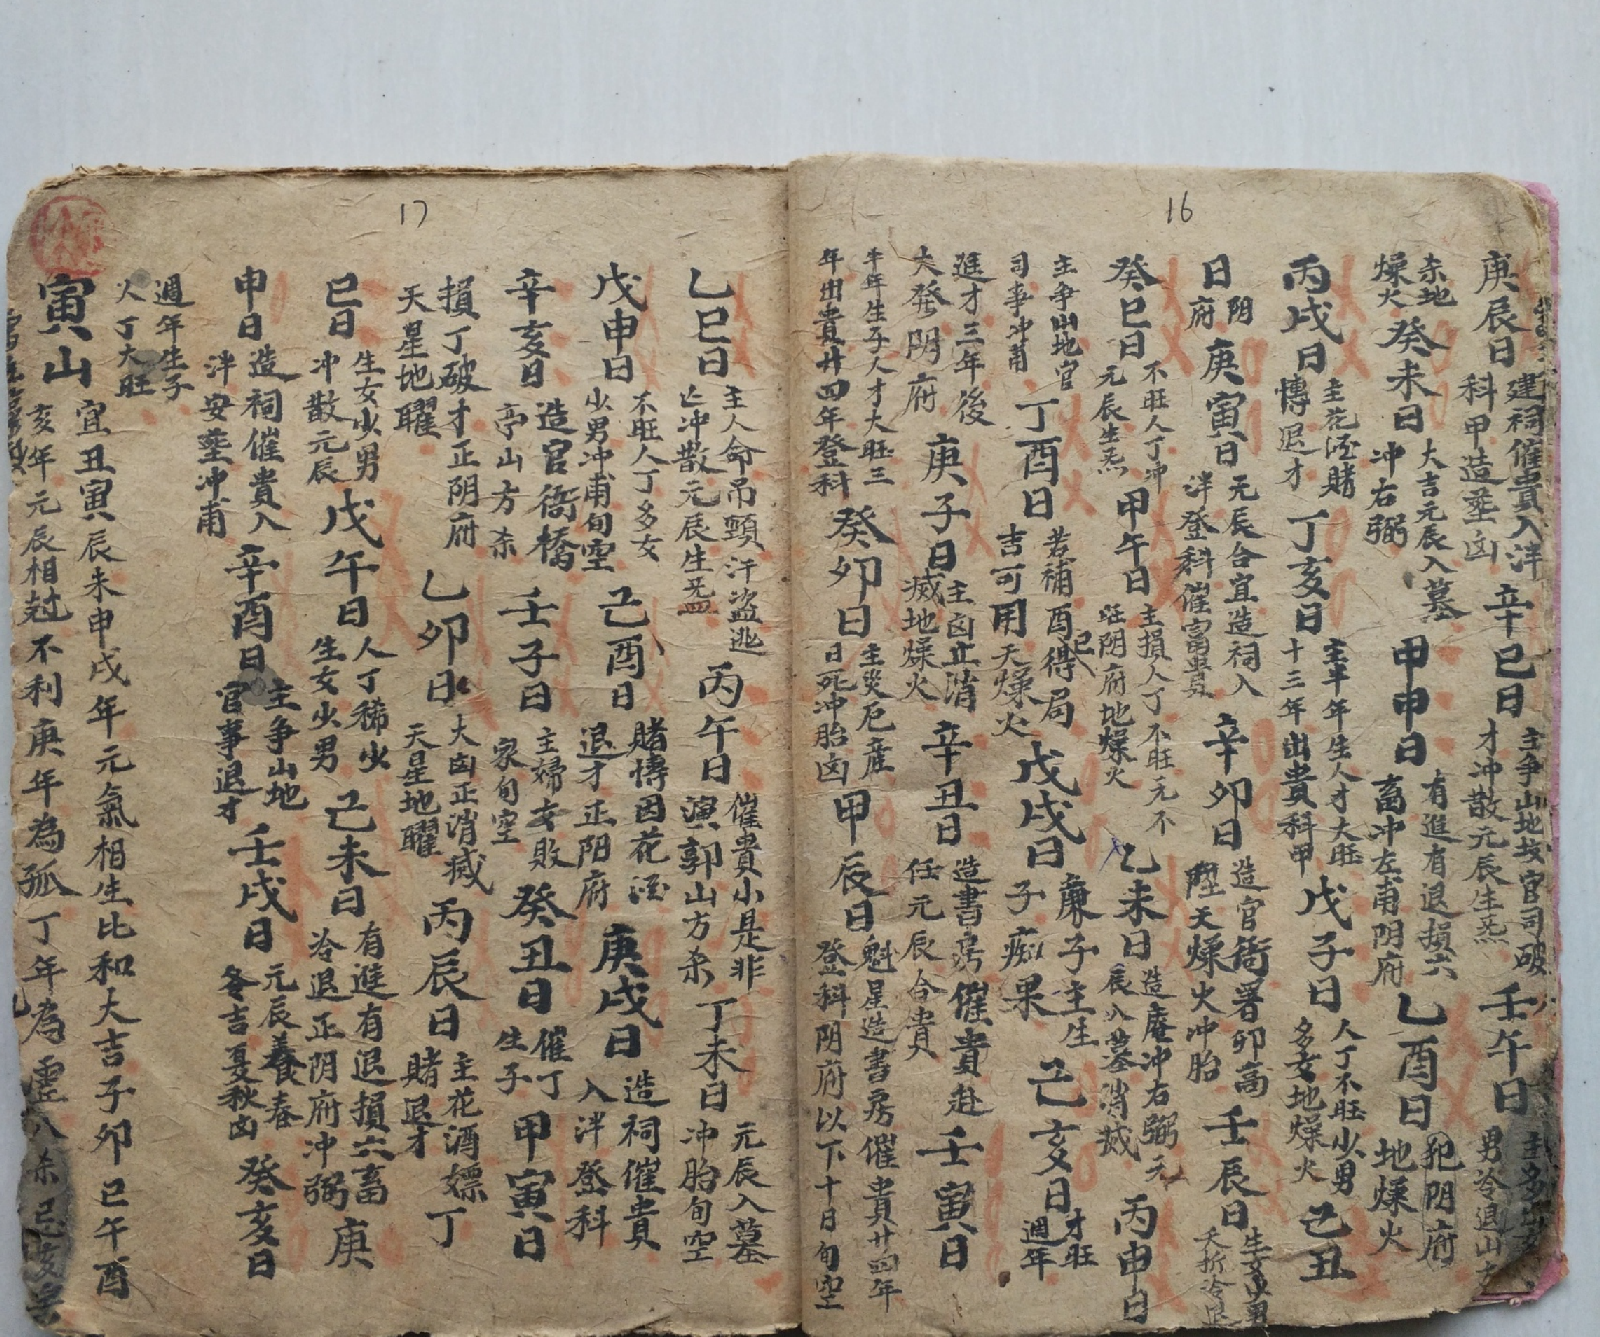 16
庚辰日 建祠催貴入泮 科甲造塋凶 辛巳日 主爭山地坟官司破才冲散元辰生炁 壬午日 男冷退山
杀地燥火 癸未日 大吉元辰入墓冲右弼 甲申日 有進有退損六畜冲左甫阴府 乙酉日 犯阴府地燥火
丙戌日 主花酒賭愽退才 丁亥日 主半年生人才大旺十三年出貴科甲 戊子日 人丁不旺少男多女地燥火 己丑
日 阴府 庚寅日 元辰合宜造祠入泮登科催富貴 辛卯日 造官衙署卯高陞天燥火冲胎 壬辰日 生女少男夭折冷退
癸巳日 不旺人丁冲元辰生炁 甲午日 主損人丁不旺元不旺阴府地燥火 乙未日 造庵冲右弼元辰入墓消滅 丙申日
主爭山地官司事冲甫 丁酉日 若補酉得局吉可用天燥火 戊戌日 廉子主生子痴果 己亥日 才旺週年
進才三年後大發阴府 庚子日 主凶正消滅地燥火 辛丑日 造書房催貴赴任元辰合貴 壬寅日
半年生子人才大旺三年出貴廿四年登科 癸卯日 主災厄産日死冲胎凶 甲辰日 魁星造書房催貴廿四年登科阴府以下十日旬空
17
乙巳日 主人命吊頸汗盗逃亡冲散元辰生炁凶 丙午日 催貴小是非演郭山方杀 丁未日 元辰入墓冲胎旬空
戊申日 不旺人丁多女少男冲甫旬空 己酉日 賭愽因花酒退才正阳府 庚戌日 造祠催貴入泮登科
辛亥日 造官衙橋亭山方杀 壬子日 主婦女敗家旬空 癸丑日 催丁生子 甲寅日
損丁破才正阴府天星地曜 乙卯日 大凶正消滅天星地曜 丙辰日 主花酒嫖賭退才 丁
巳日 生女少男冲散元辰 戊午日 人丁稀少生女少男 己未日 有進有退損六畜冷退正阴府冲弼 庚
申日 造祠催貴入泮安塋冲甫 辛酉日 主爭山地官事退才 壬戌日 元辰養春冬吉夏秋凶 癸亥日
週年生子人丁大旺
寅山 宜丑寅辰未申戌年元氣相生比和大吉子卯巳午酉
亥年元辰相尅不利庚年為孤丁年為虛八杀忌